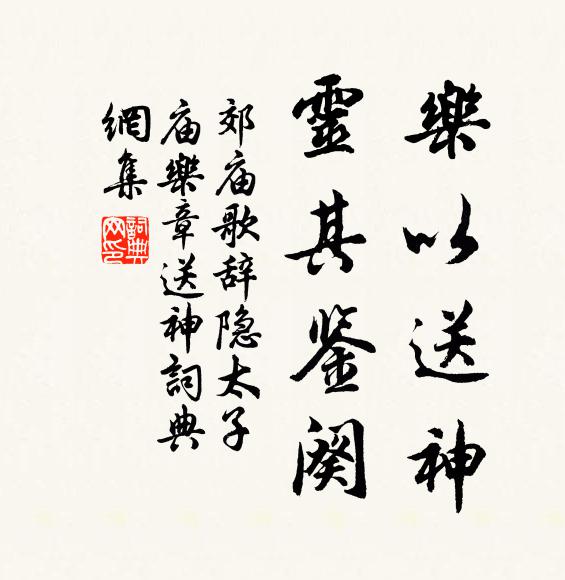 樂以送神
靈其鉴阕
郊庙歌辞隐太子
庙樂章送神詞典
網集
詞典
网印